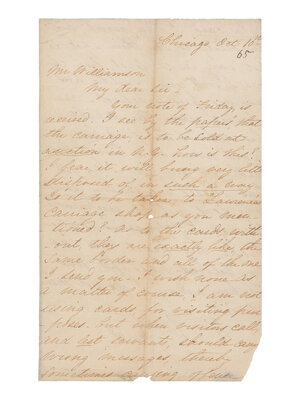 Chicago Oct 10th
65
Mr Williamson
My dear Sir.
Your note of Friday is
received. I see by the papers that
the carriage is to be sold at
auction in N.Y. how is this?
I fear it will bring very little
disposed of in such a way
Is it to be taken to Lawrence
Carriage shop as you men
tioned? as to the cards with
out, they are exactly like the
same border and all of the one
I send you. I wish now is
a matter of course, I am not
using cards for visiting pur
poses. but when visitors call
and servant, should carry
wrong messages, thereby
sometimes